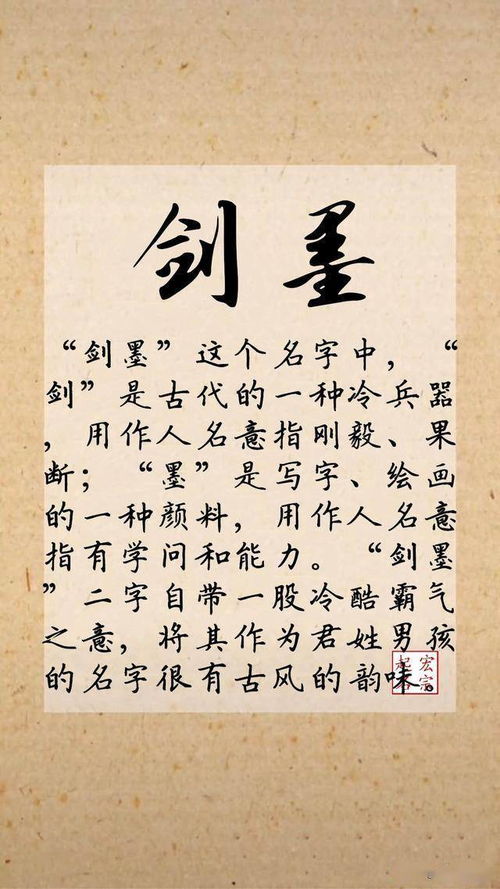 剑墨
“剑墨”这个名字中，“
剑”是古代的一种冷兵器
，用作人名意指刚毅、果
断；“墨”是写字、绘画
的一种颜料，用作人名意
指有学问和能力。“剑墨
”二字自带一股冷酷霸气
之意，将其作为君姓男孩
的名字很有古风的韵味。
宏宗
起